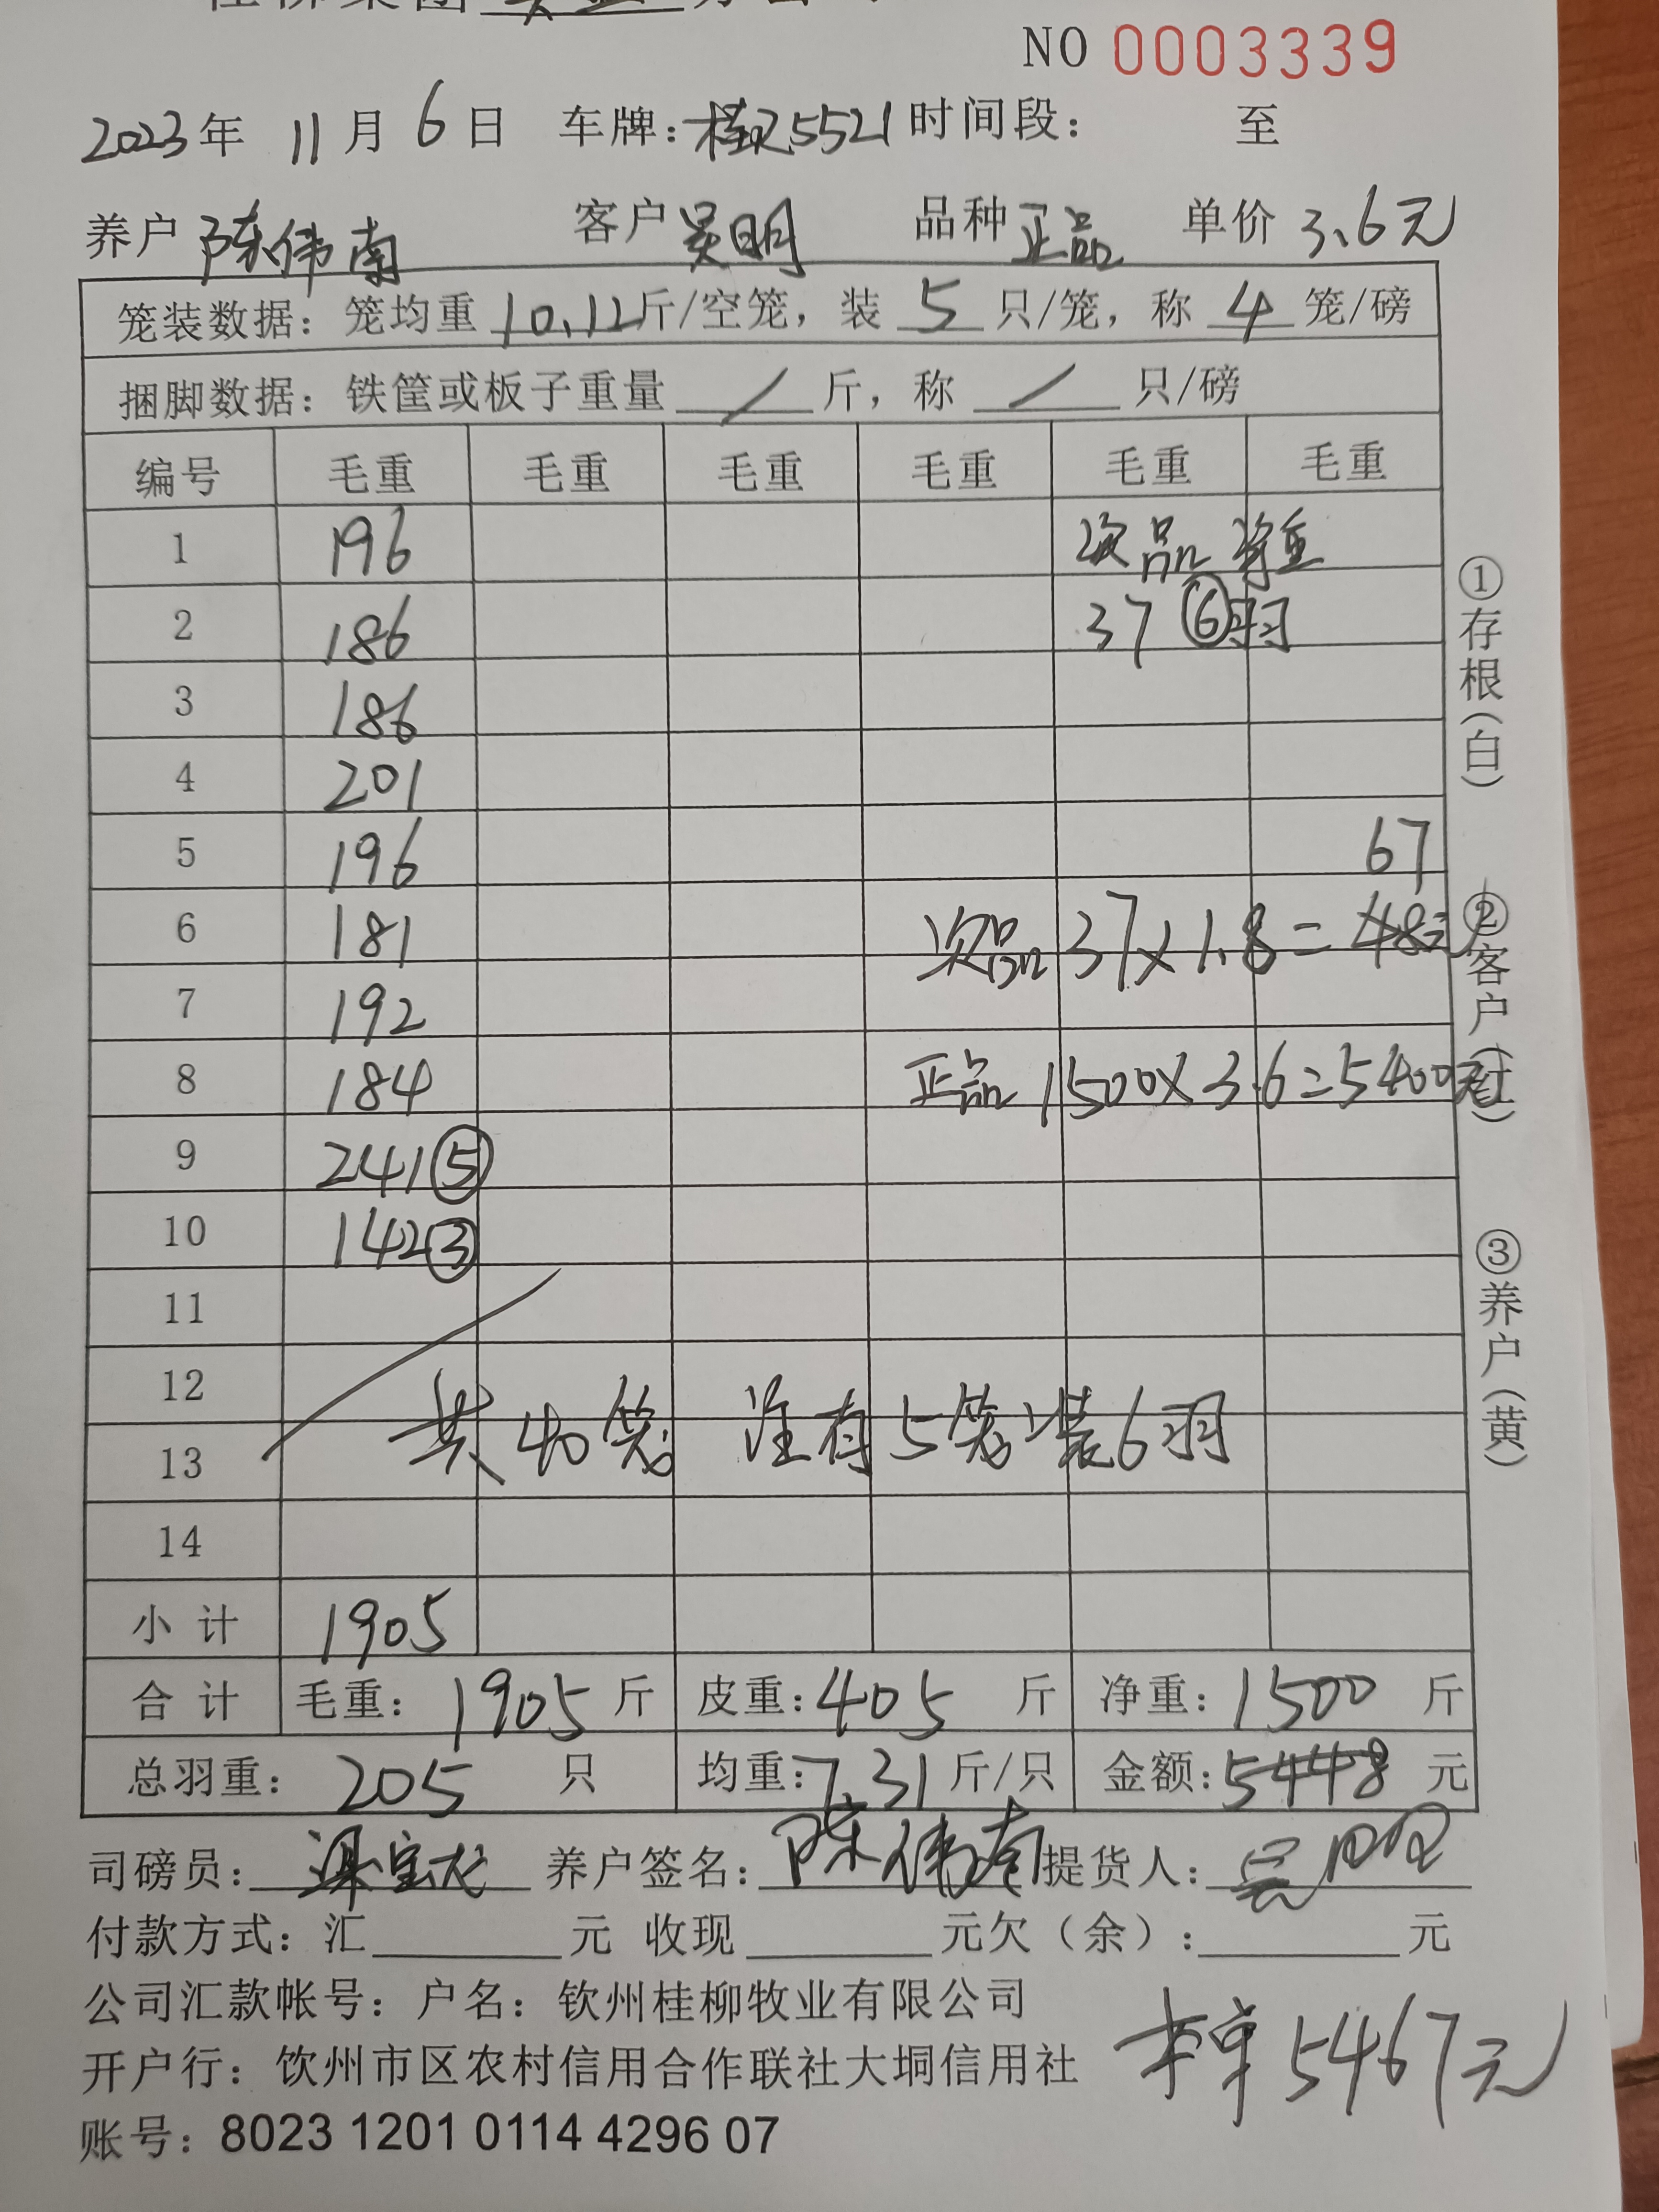 NO 0003339
2023年 11月 6日 车牌:桂 5521 时间段: 至
养户 陈伟南 客户 吴明 品种 正品 单价 3.6元
笼装数据: 笼均重 10.12 斤/空笼, 装 5 只/笼, 称 4 笼/磅
捆脚数据: 铁筐或板子重量 / 斤, 称 / 只/磅
编号 毛重 毛重 毛重 毛重 毛重 毛重
1 196 次品 净重
2 186 37 ⑥羽
3 186
4 201
5 196 67
6 181 次品 37×1.8=48元
7 192
8 184 正品 1500×3.6=5400元
9 241⑤
10 142③
11
12
13 共40笼 准有5笼装6羽
14
小计 1905
合计 毛重: 1905 斤 皮重: 405 斤 净重: 1500 斤
总羽重: 205 只 均重: 7.31 斤/只 金额: 5448 元
司磅员: 养户签名: 陈伟南 提货人: 吴明
付款方式: 汇 元 收现 元欠(余): 元
公司汇款帐号: 户名: 钦州桂柳牧业有限公司
开户行: 钦州市区农村信用合作联社大垌信用社
5467元
账号: 8023 1201 0114 4296 07
①存根(白)
②客户(红)
③养户(黄)